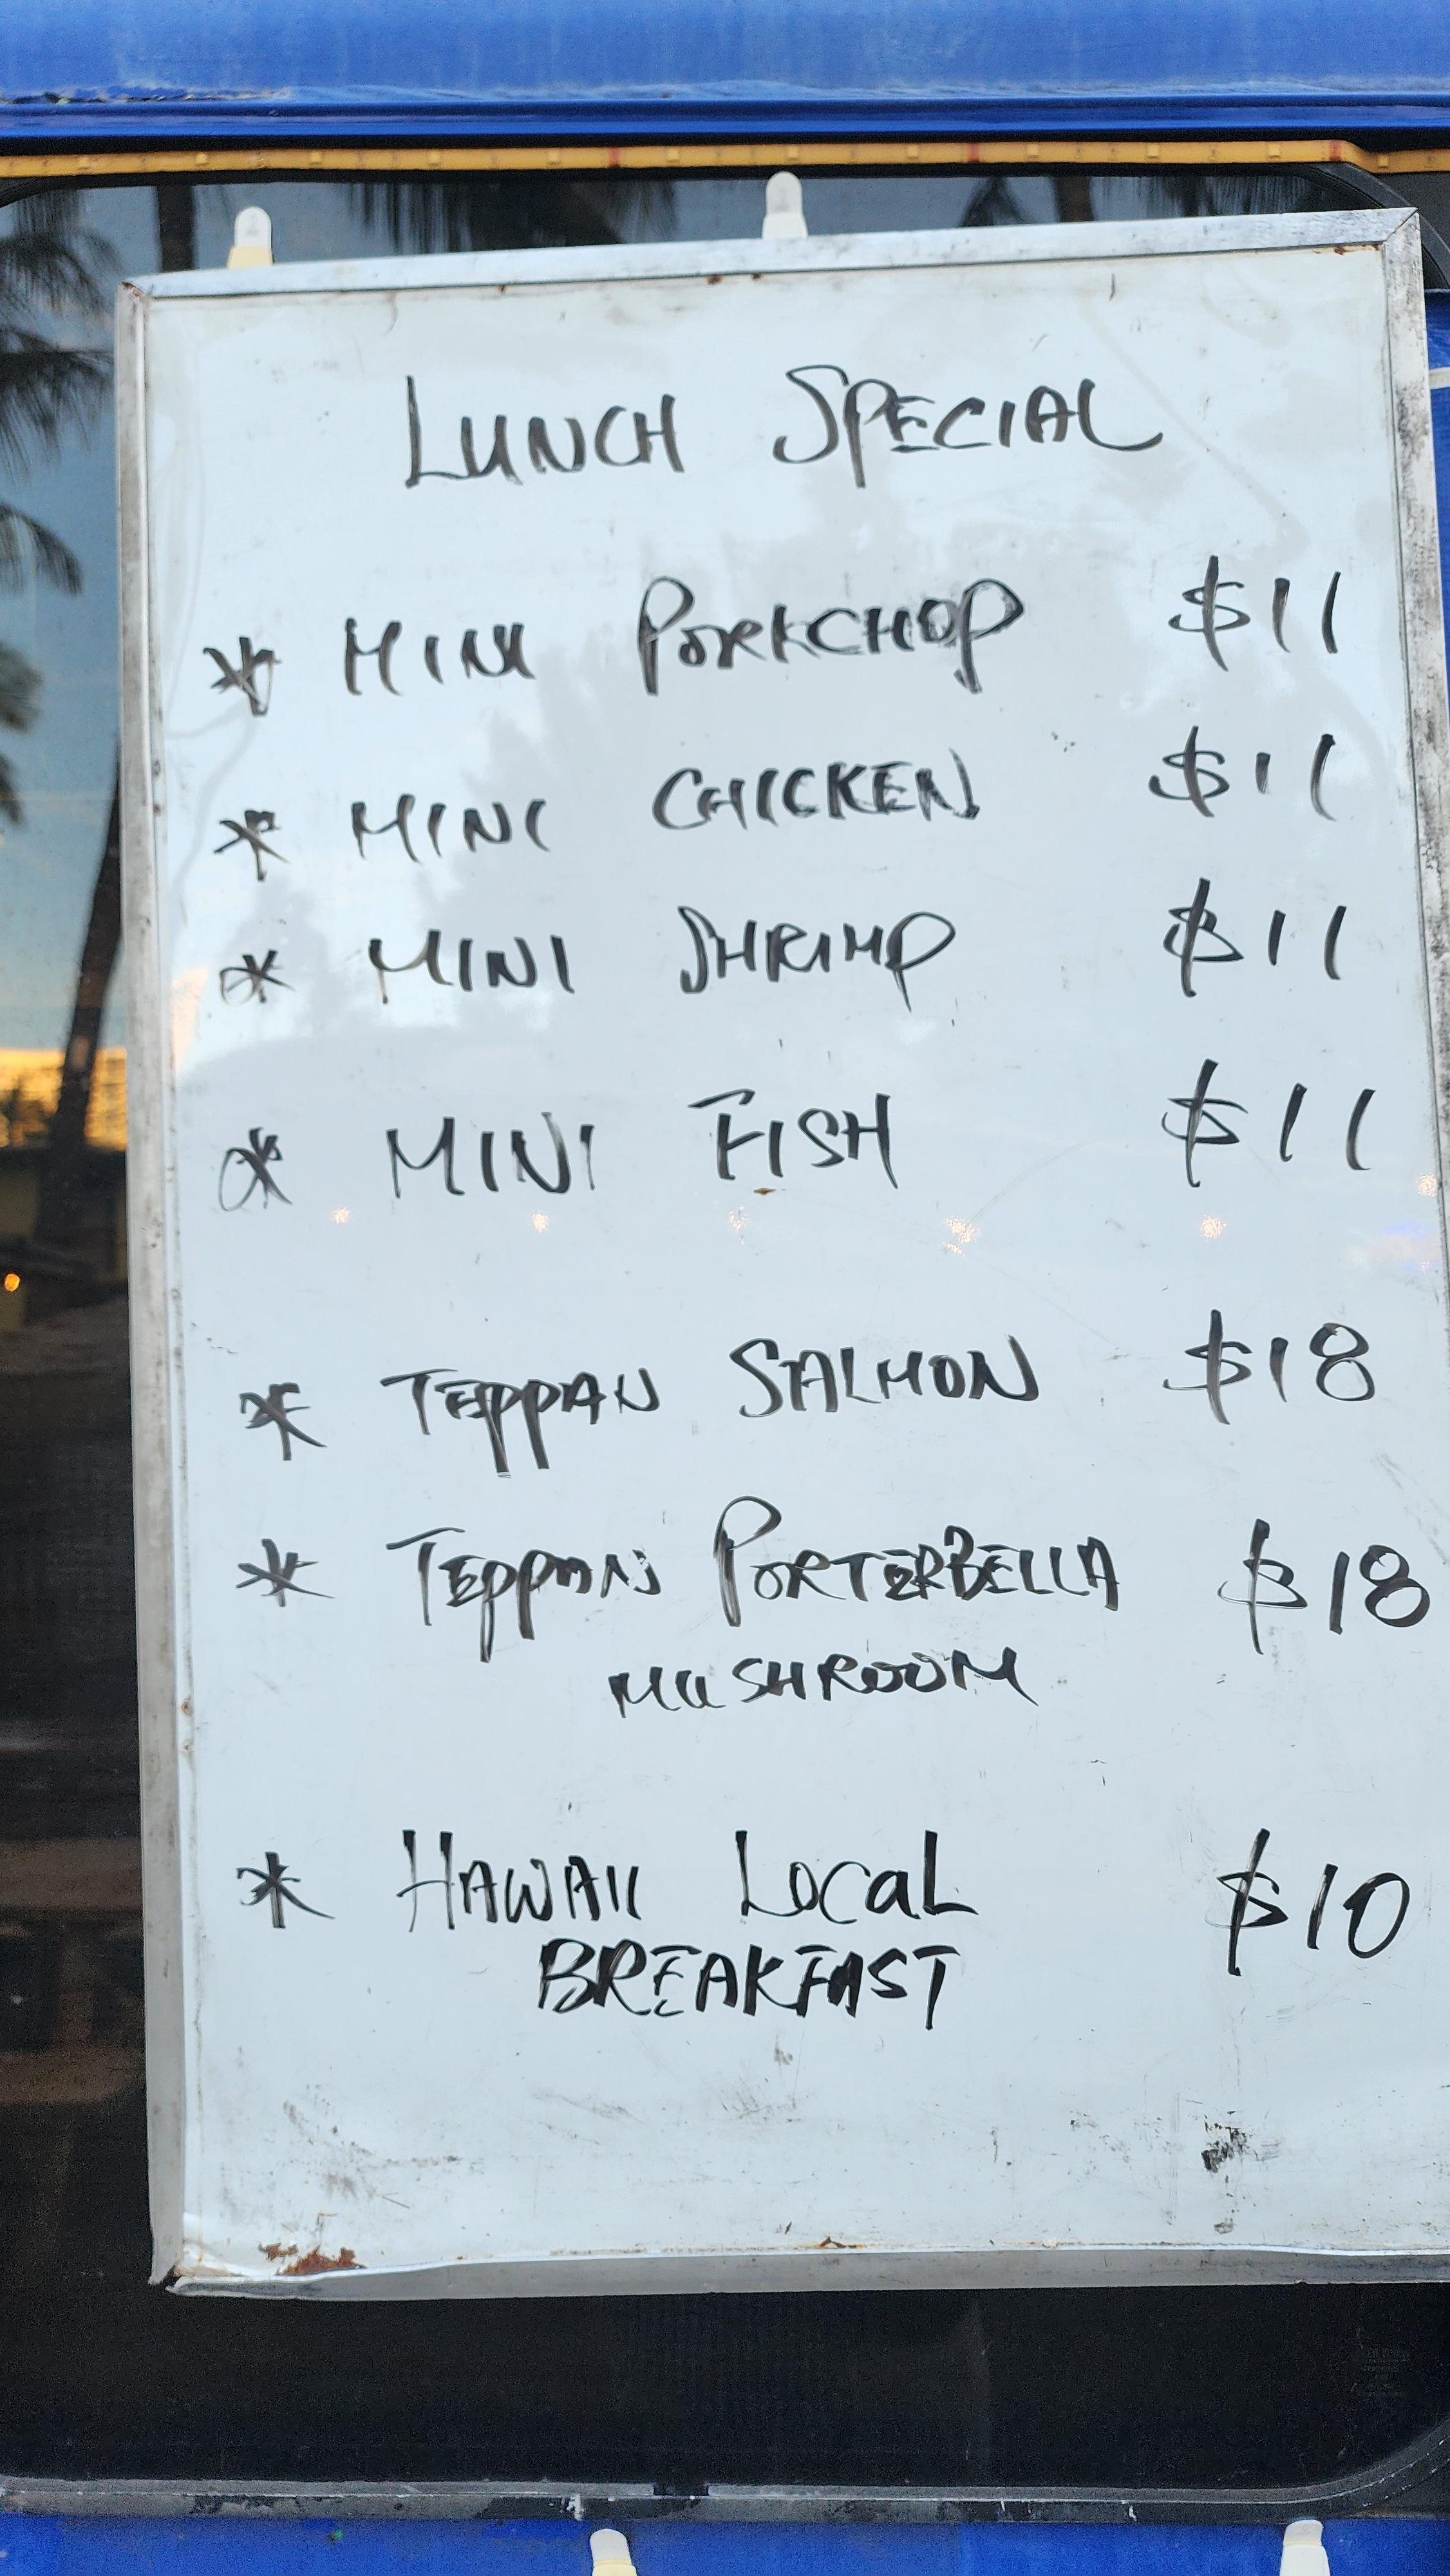 LUNCH SPECIAL
* MINI PORKCHOP $11
* MINI CHICKEN $11
* MINI SHRIMP $11
* MINI FISH $11
* TEPPAN SALMON $18
* TEPPAN PORTERBELLA $18
MUSHROOM
* HAWAII LOCAL $10
BREAKFAST